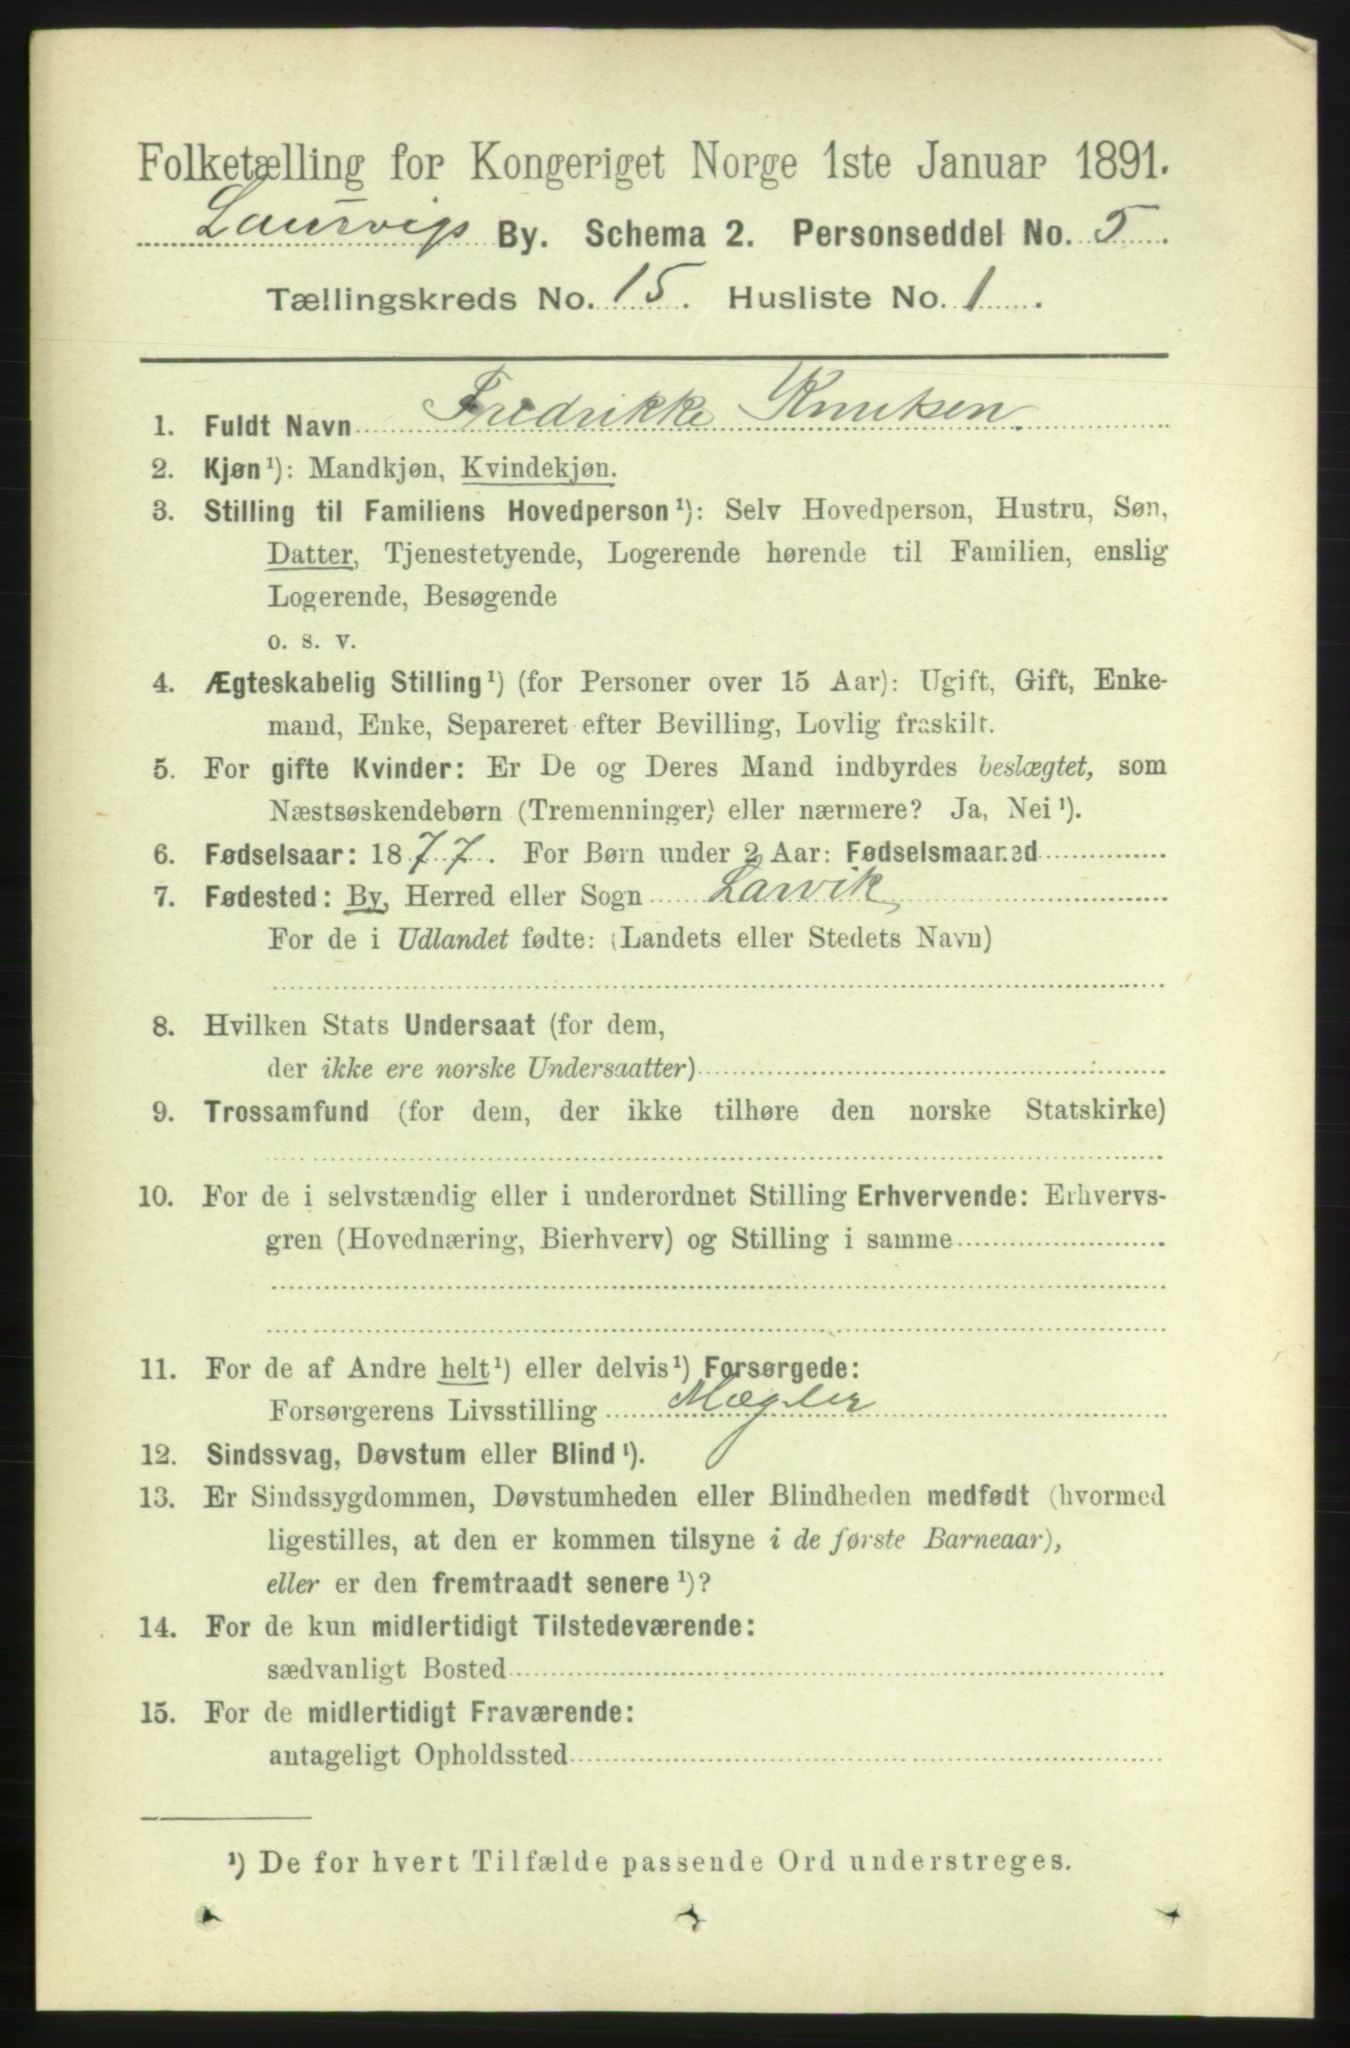 Folketælling for Kongeriget Norge 1ste Januar 1891.
Laurvigs By. Schema 2. Personseddel No. 5.
Tællingskreds No. 15. Husliste No. 1.
1. Fuldt Navn Fredrikke Knutsen.
2. Kjøn¹): Mandkjøn, Kvindekjøn.
3. Stilling til Familiens Hovedperson¹): Selv Hovedperson, Hustru, Søn,
Datter, Tjenestetyende, Logerende hørende til Familien, enslig
Logerende, Besøgende
o. s. v.
4. Ægteskabelig Stilling¹) (for Personer over 15 Aar): Ugift, Gift, Enke-
mand, Enke, Separeret efter Bevilling, Lovlig fraskilt.
5. For gifte Kvinder: Er De og Deres Mand indbyrdes beslægtet, som
Næstsøskendebørn (Tremenninger) eller nærmere? Ja, Nei¹).
6. Fødselsaar: 1877. For Børn under 2 Aar: Fødselsmaaned
7. Fødested: By, Herred eller Sogn Larvik
For de i Udlandet fødte: (Landets eller Stedets Navn)
8. Hvilken Stats Undersaat (for dem,
der ikke ere norske Undersaatter)
9. Trossamfund (for dem, der ikke tilhøre den norske Statskirke)
10. For de i selvstændig eller i underordnet Stilling Erhvervende: Erhvervs-
gren (Hovednæring, Bierhverv) og Stilling i samme
11. For de af Andre helt¹) eller delvis¹) Forsørgede:
Forsørgerens Livsstilling Mægler
12. Sindssvag, Døvstum eller Blind¹).
13. Er Sindssygdommen, Døvstumheden eller Blindheden medfødt (hvormed
ligestilles, at den er kommen tilsyne i de første Barneaar),
eller er den fremtraadt senere¹)?
14. For de kun midlertidigt Tilstedeværende:
sædvanligt Bosted
15. For de midlertidigt Fraværende:
antageligt Opholdssted
¹) De for hvert Tilfælde passende Ord understreges.